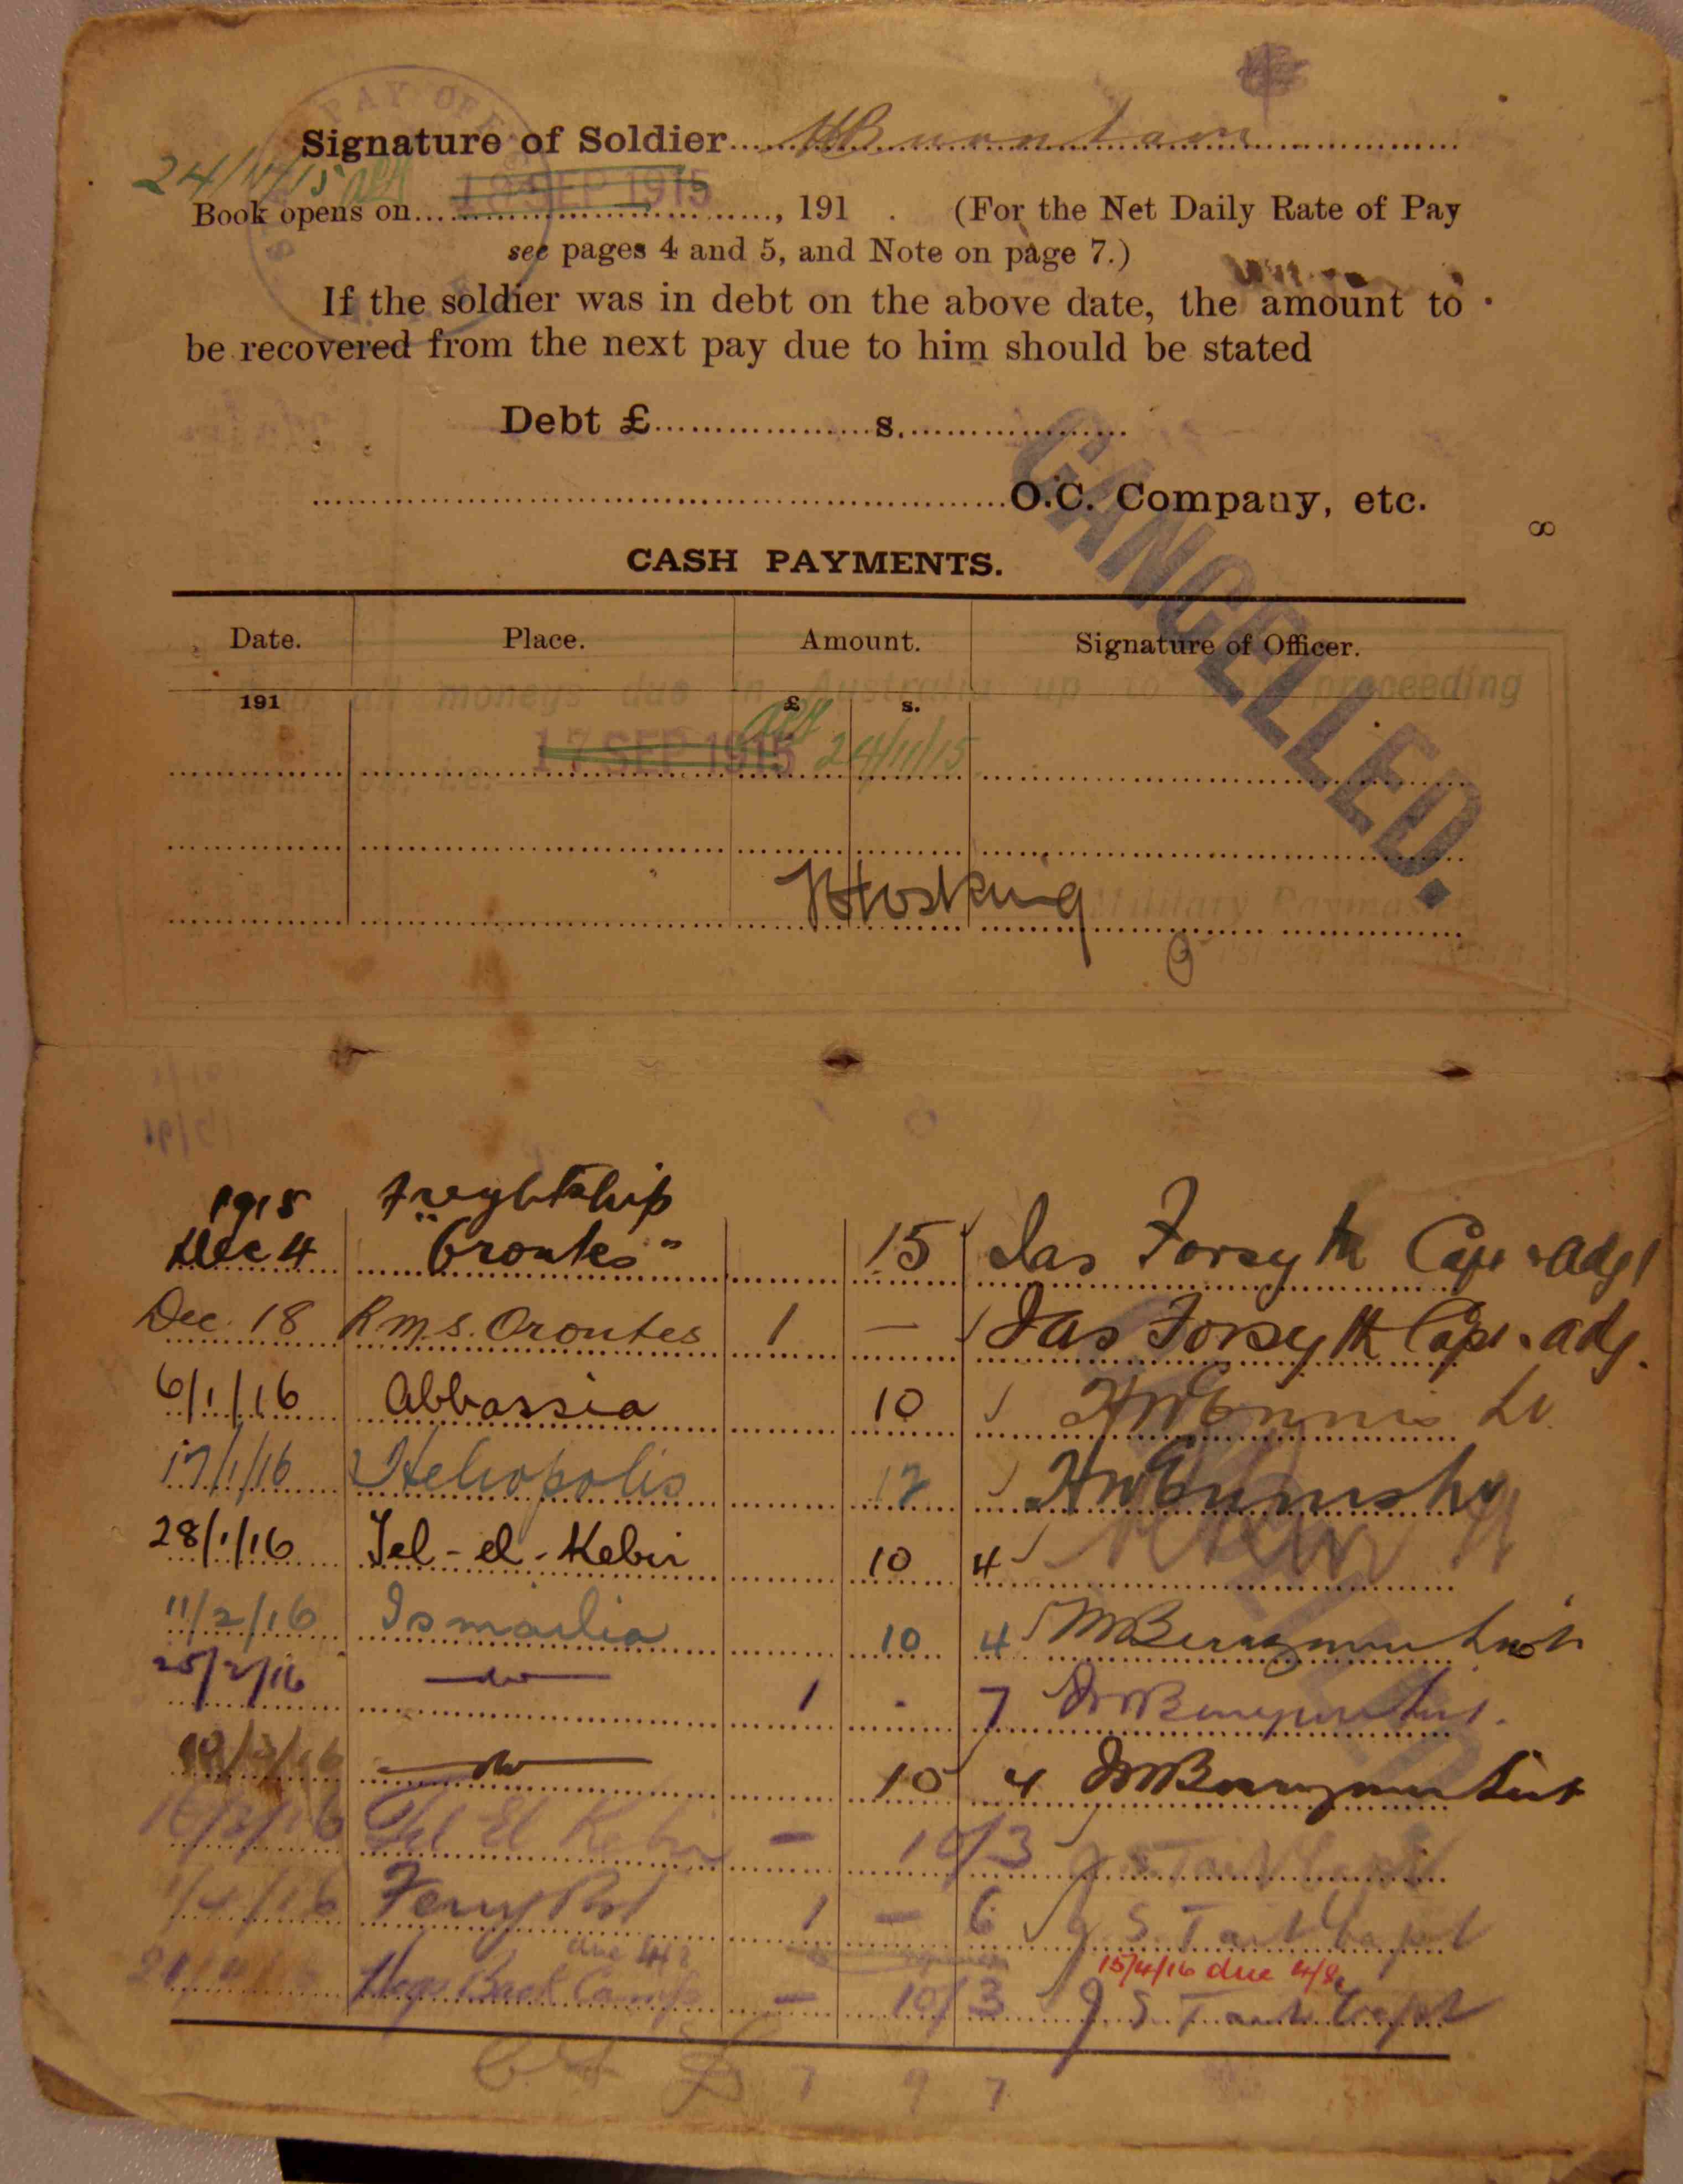 PAY OFF
Signature of Soldier
24/11/15
18 SEP 1915
Book opens on , 191 . (For the Net Daily Rate of Pay
see pages 4 and 5, and Note on page 7.)
If the soldier was in debt on the above date, the amount to
be recovered from the next pay due to him should be stated
Debt £ s.
O.C. Company, etc.
8
CANCELLED.
CASH PAYMENTS.
Date. Place. Amount. Signature of Officer.
all moneys due in Australia up to proceeding
191 £ s.
17 SEP 1915 24/11/15
Hosking
Military Paymaster
1915 freightship
Dec 4 "Orontes" 15 Jas Forsyth Capt & Adjt
Dec. 18 R.M.S. Orontes 1 — Jas Forsyth Capt & adj.
6/1/16 Abbassia 10
17/1/16 Heliopolis 12
28/1/16 Tel-el-Kebir 10 4
11/2/16 Ismailia 10 4
25/2/16 —do— 1 . 7
—do— 10 4
16/3/16 Tel El Kebir — 10/3 J. S. Tait Capt
1/4/16 Ferry Post 1 — 6 J. S. Tait Capt
due 15/4/16 due 4/8
Hogs Back Camp — 10/3 J. S. Tait Capt
£ 7 9 7